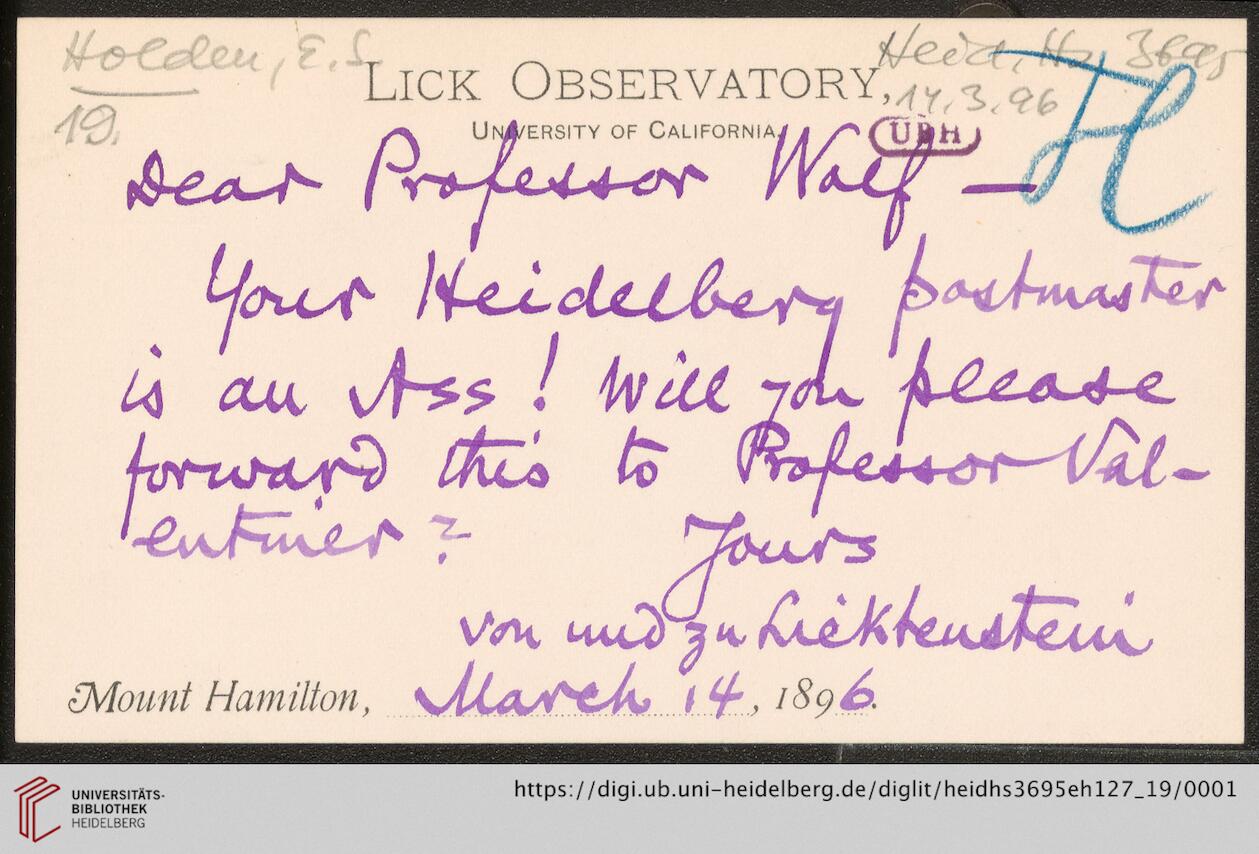 Holden, E. S.
19.
Heid. Hs. 3695
14.3.96
LICK OBSERVATORY,
UNIVERSITY OF CALIFORNIA.
UBH
Dear Professor Wolf —
Your Heidelberg postmaster
is an Ass! Will you please
forward this to Professor Val-
entiner?
Yours
von und zu Licktenstein
Mount Hamilton, March 14, 1896.
UNIVERSITÄTS-
BIBLIOTHEK
HEIDELBERG
https://digi.ub.uni-heidelberg.de/diglit/heidhs3695eh127_19/0001